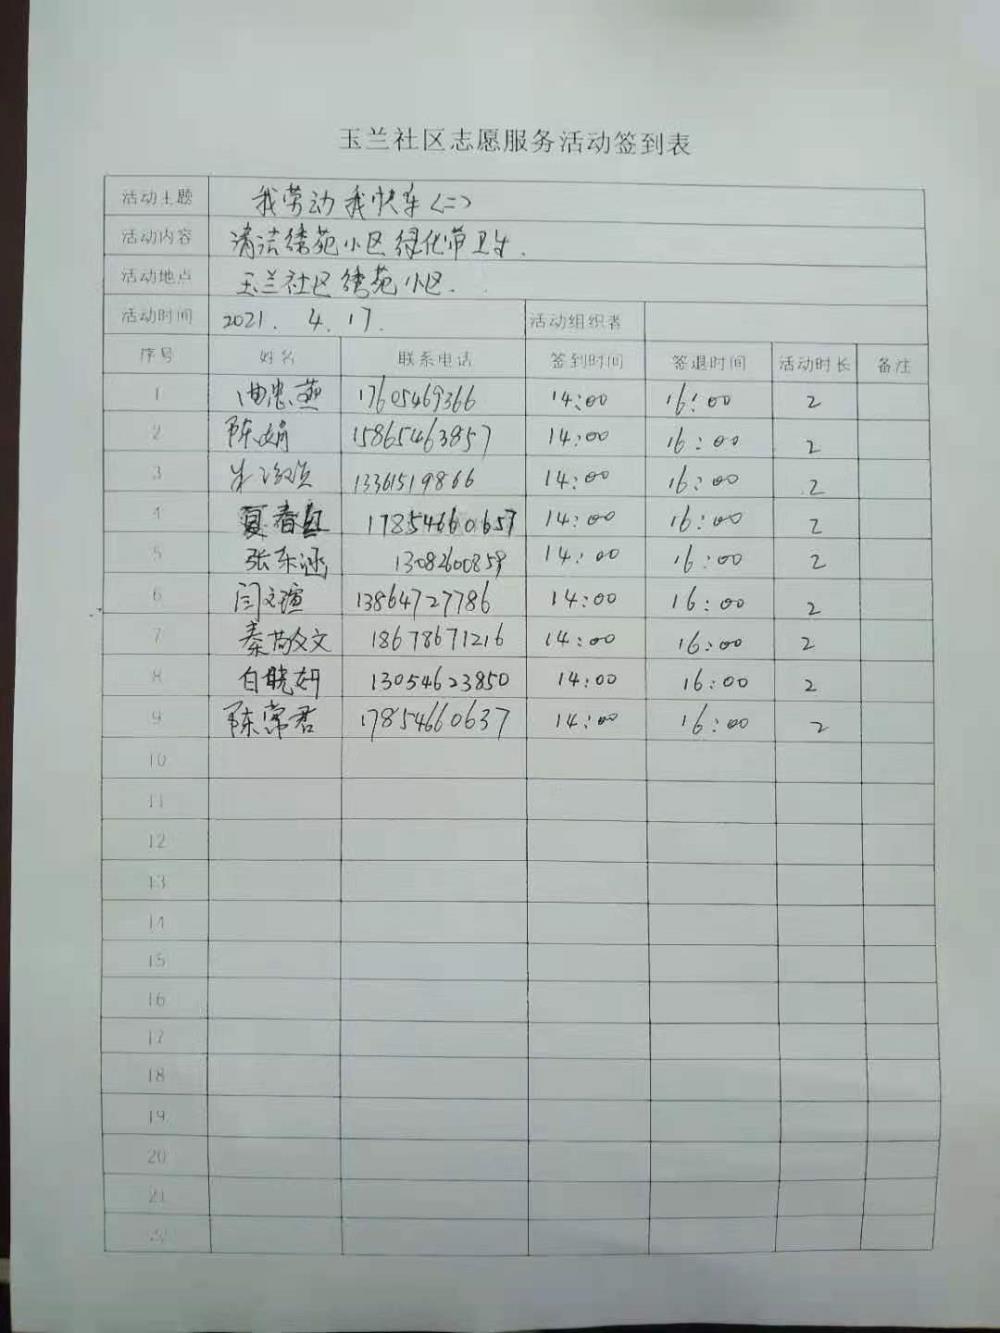 玉兰社区志愿服务活动签到表
活动主题 我劳动我快乐(二)
活动内容 清洁绣苑小区绿化带卫生.
活动地点 玉兰社区绣苑小区.
活动时间 2021. 4. 17. 活动组织者
序号 姓名 联系电话 签到时间 签退时间 活动时长 备注
1 曲忠燕 17605469366 14:00 16:00 2
2 陈娟 15865463857 14:00 16:00 2
3 13361519866 14:00 16:00 2
4 夏春 17854660657 14:00 16:00 2
5 张东涵 13082600859 14:00 16:00 2
6 闫文瑄 13864727786 14:00 16:00 2
7 秦敬文 18678671216 14:00 16:00 2
8 白晓妍 13054623850 14:00 16:00 2
9 陈常君 17854660637 14:00 16:00 2
10
11
12
13
14
15
16
17
18
19
20
21
22